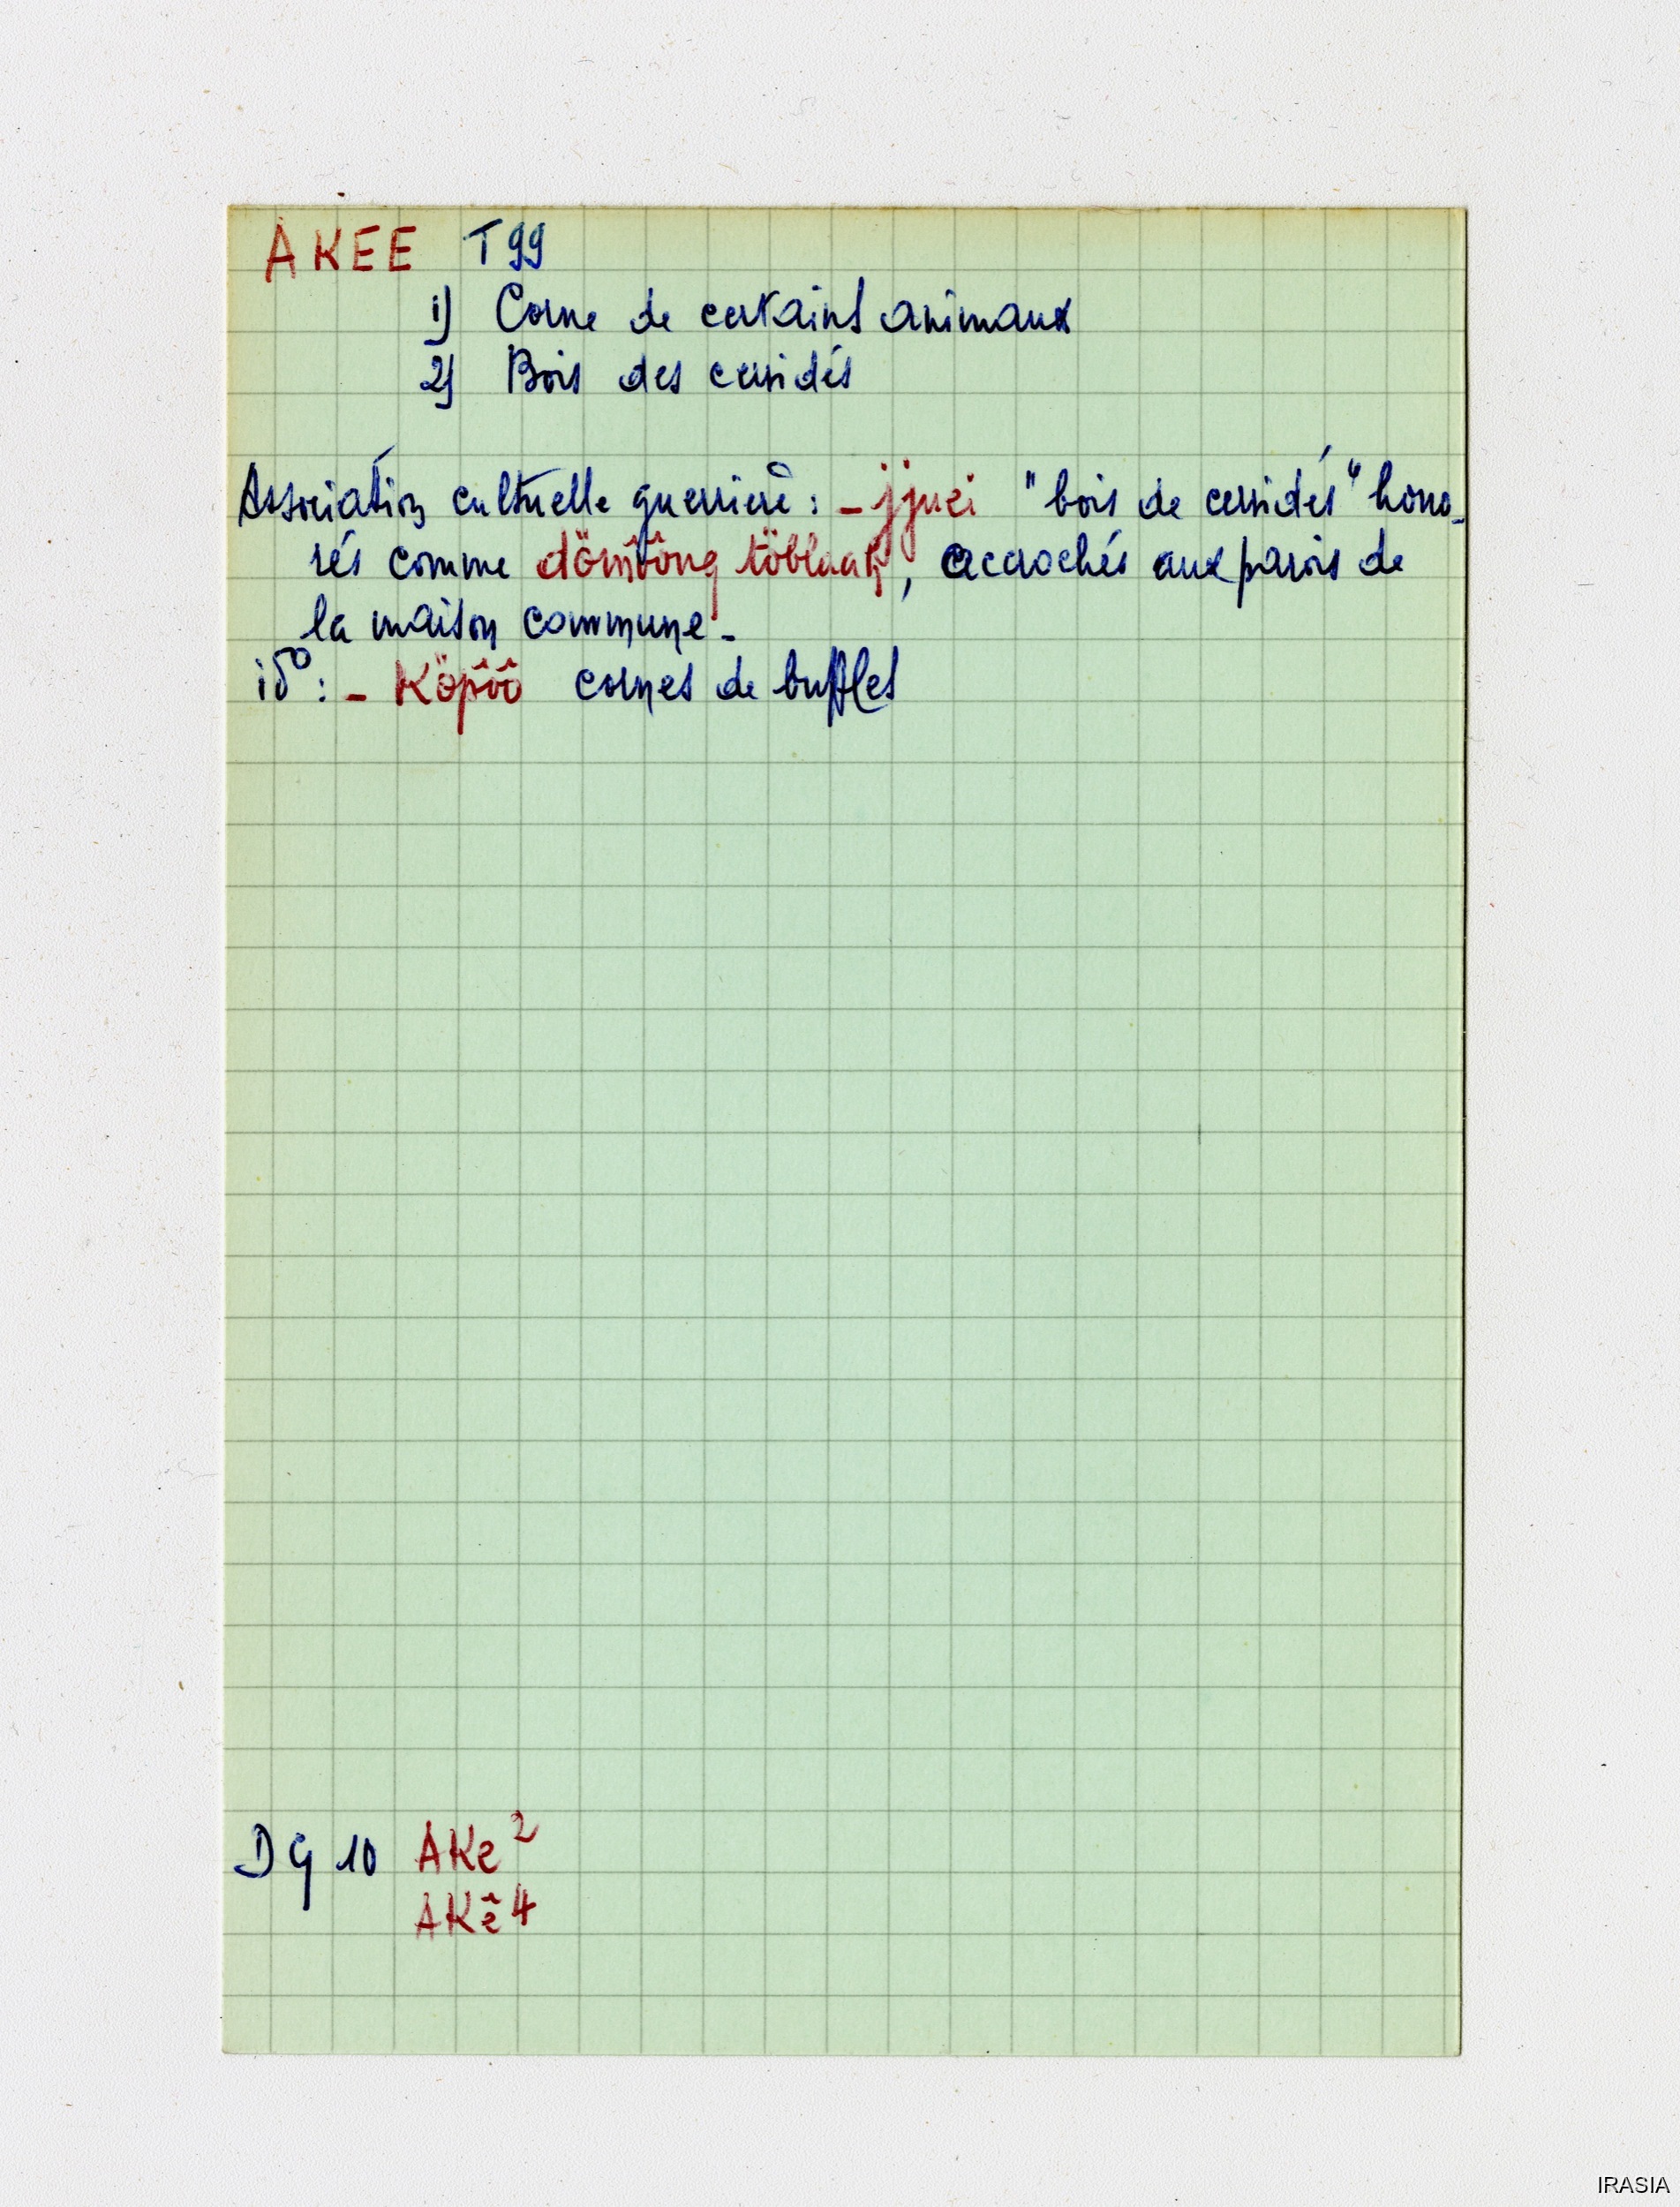 AKEE T99
1) Corne de certains animaux
2) Bois des cervidés
Association cultuelle guerrière : - jjuei "bois de cervidés" hono-
rés comme dömôông töblaah, accrochés aux parois de
la maison commune -
id° : - Köpôô cornes de buffles
DG 10 AKe 2
AKê 4
IRASIA